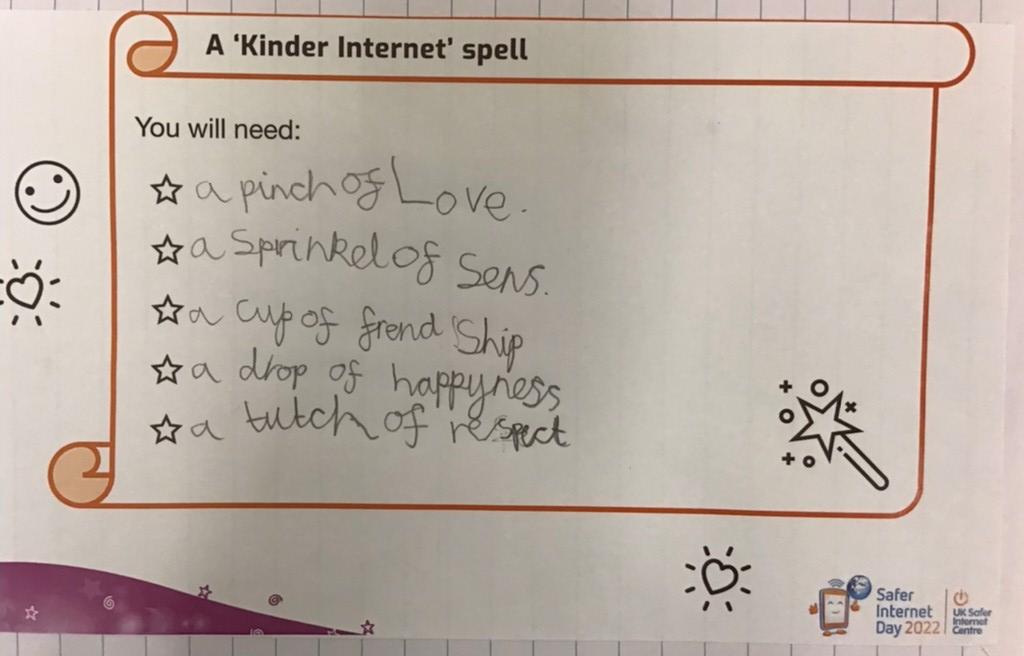 A ‘Kinder Internet’ spell
You will need:
a pinch of Love.
a Sprinkel of Sens.
a cup of frend Ship
a drop of happyness
a tutch of respect
Safer
Internet
Day 2022
UK Safer
Internet
Centre